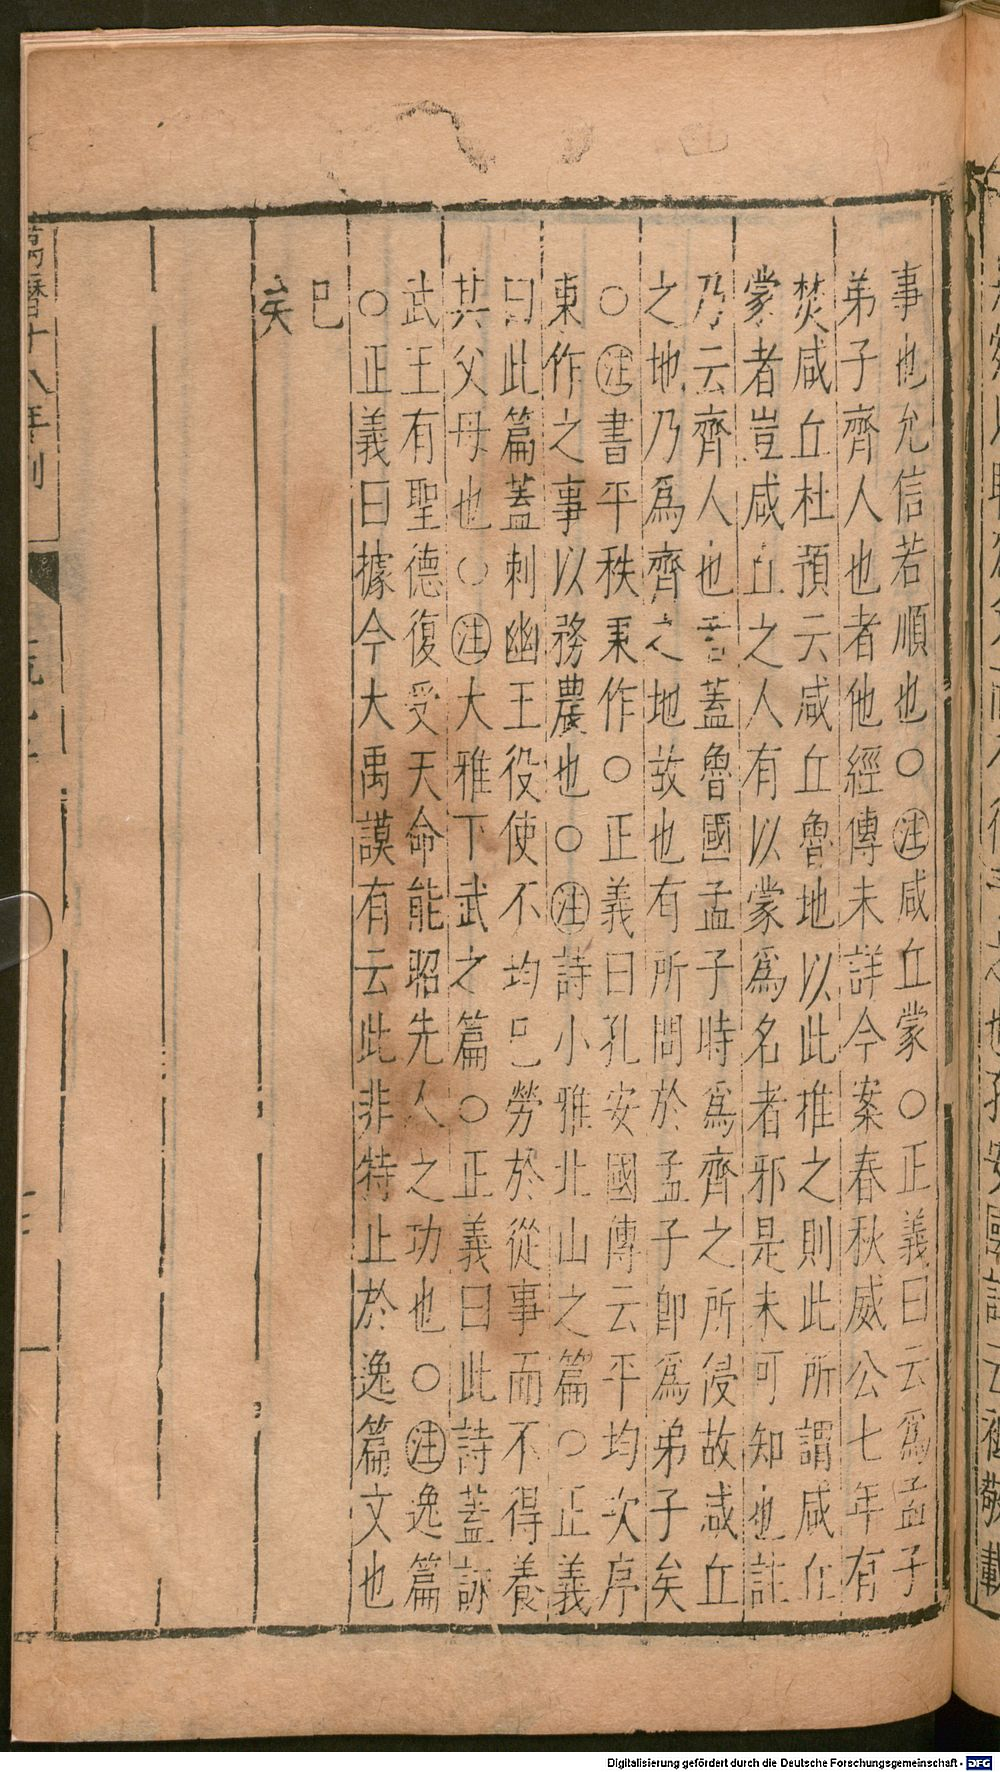 事也允信若順也○注咸丘蒙○正義曰云爲孟子
弟子齊人也者他經傳未詳今案春秋威公七年有
焚咸丘杜預云咸丘魯地以此推之則此所謂咸丘
蒙者豈咸丘之人有以蒙爲名者邪是未可知也註
乃云齊人也蓋魯國孟子時爲齊之所侵故咸丘
之地乃爲齊之地故也有所問於孟子即爲弟子矣
○注書平秩東作○正義曰孔安國傳云平均次序
東作之事以務農也○注詩小雅北山之篇○正義
曰此篇蓋刺幽王役使不均已勞於從事而不得養
其父母也○注大雅下武之篇○正義曰此詩蓋詠
武王有聖德復受天命能昭先人之功也○注逸篇
○正義曰據今大禹謨有云此非特止於逸篇文也
已
矣
萬曆十八年刊
Digitalisierung gefördert durch die Deutsche Forschungsgemeinschaft - DFG